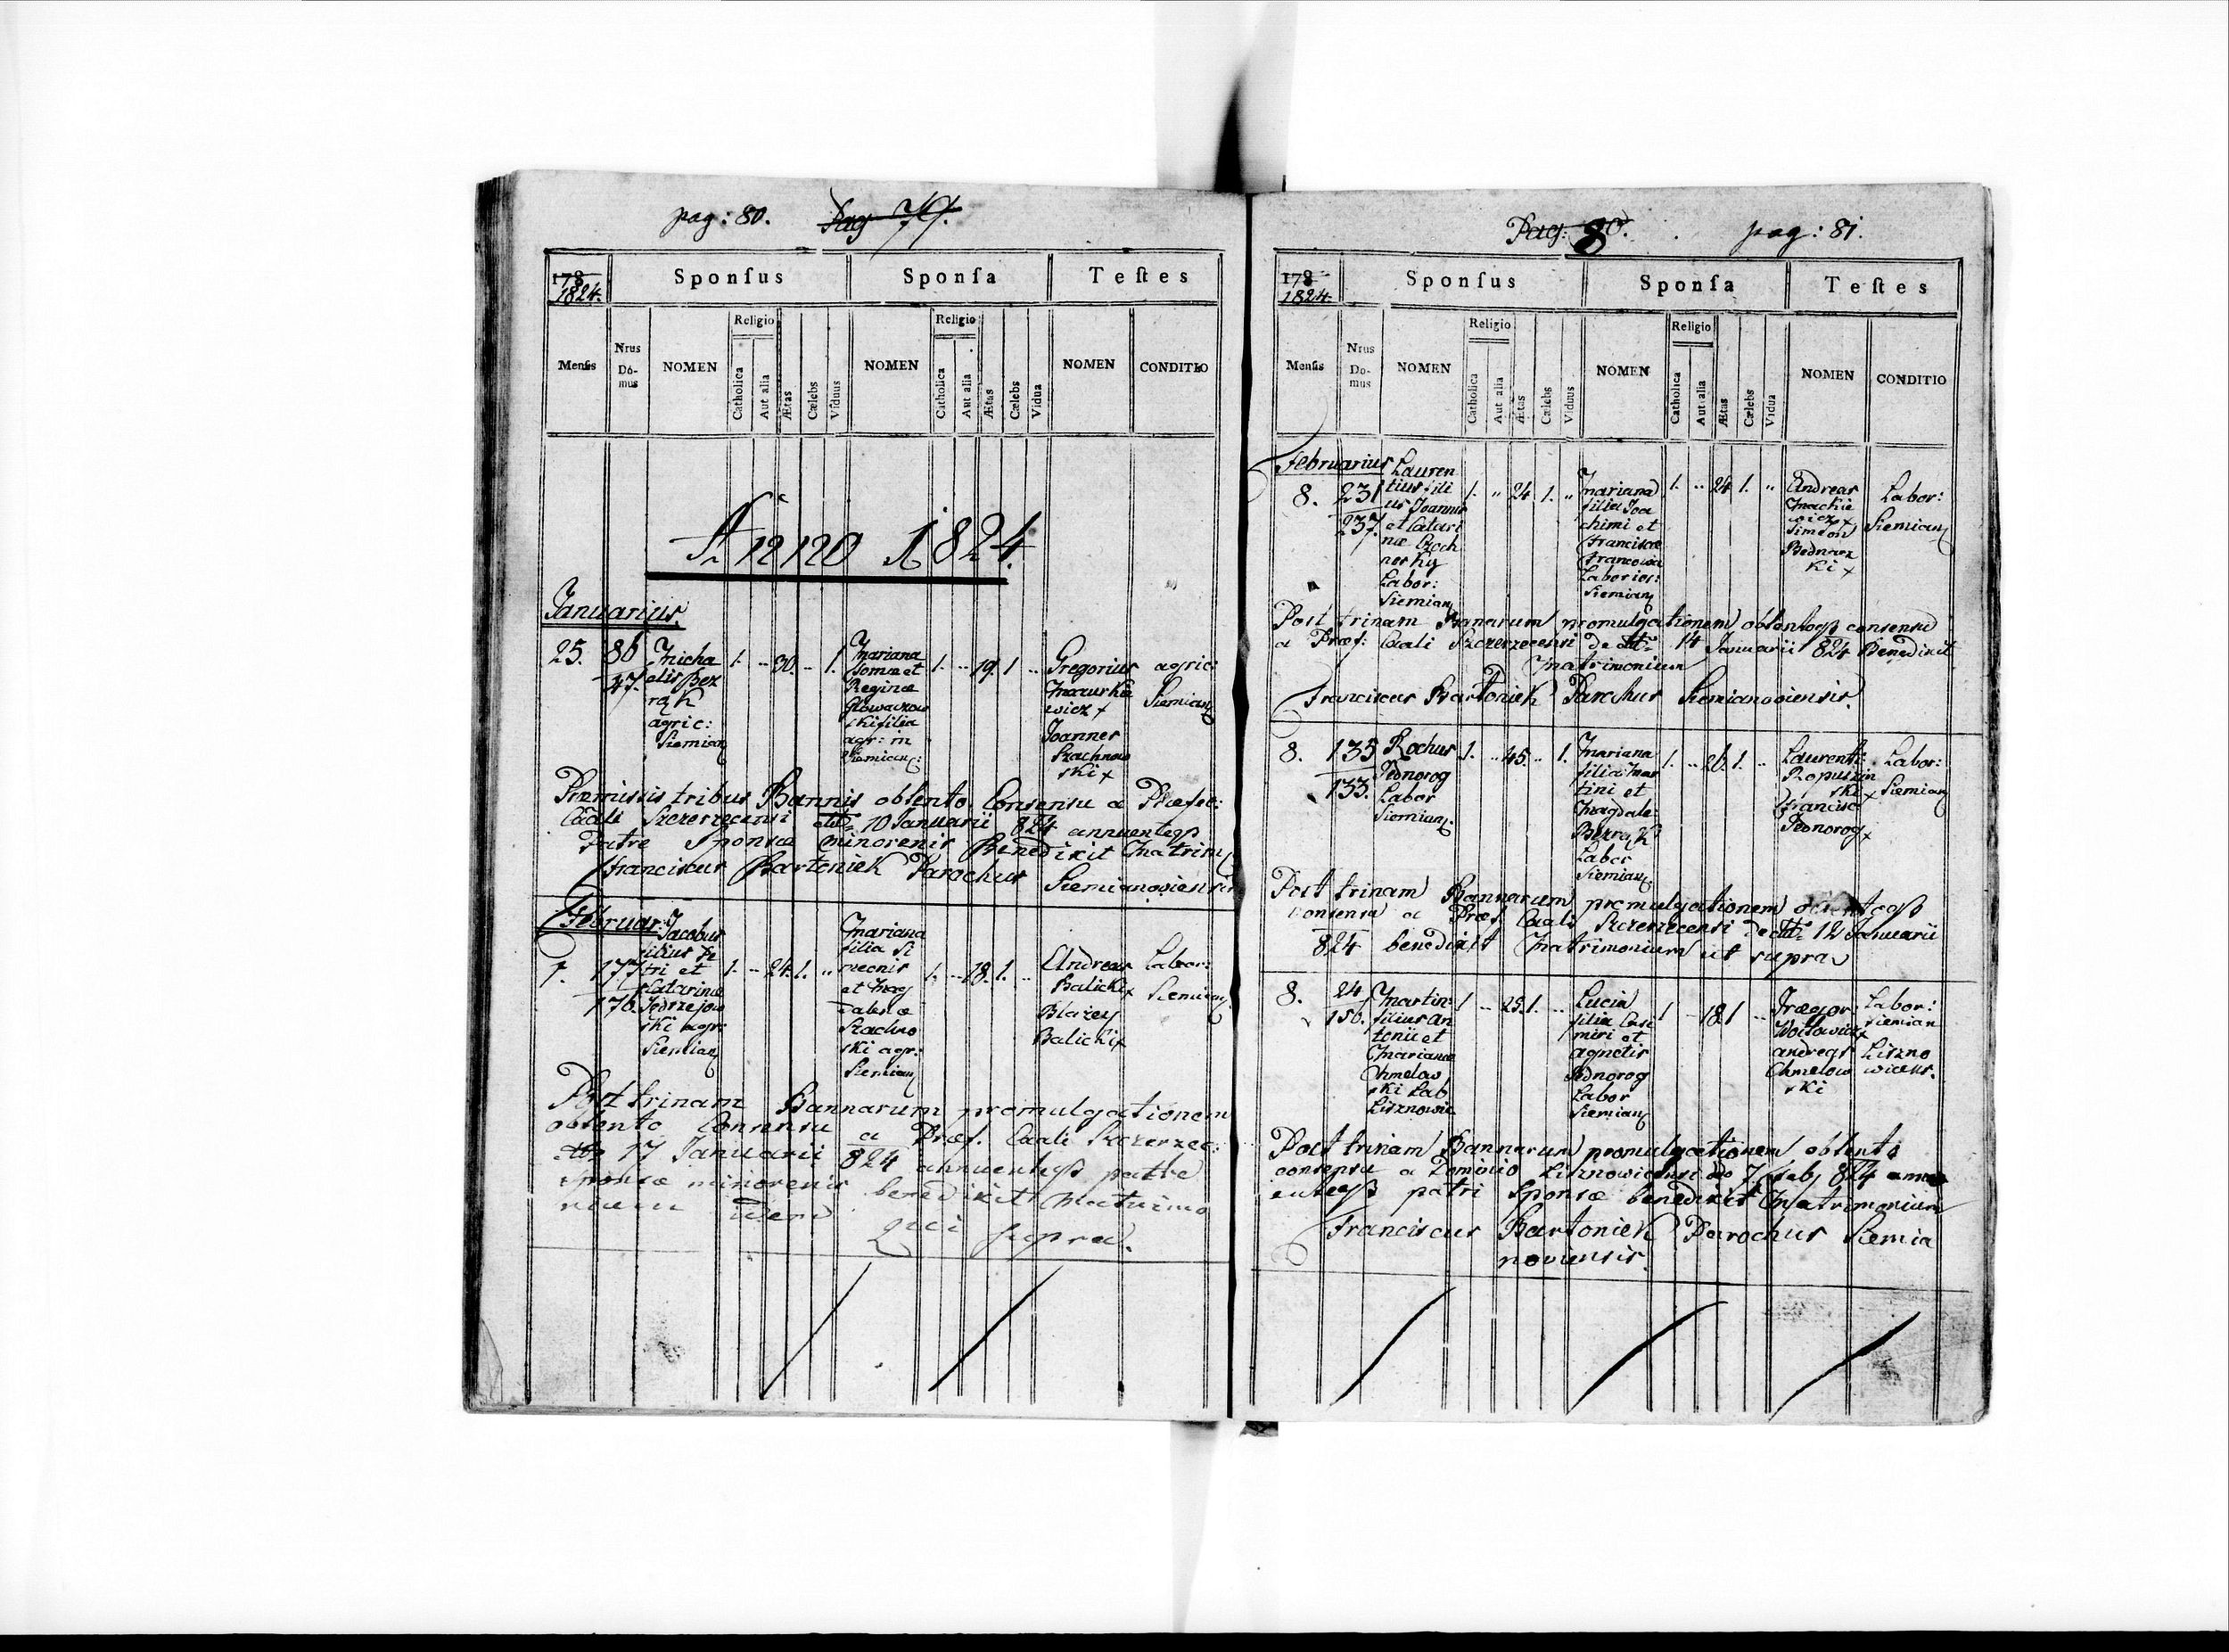 pag: 80. Pag 79.
178
1824.
Sponſus Sponſa Teſtes
Menſis Nrus Do-mus NOMEN Religio Catholica Aut alia Ætas Cælebs Viduus NOMEN Religio Catholica Aut alia Ætas Cælebs Vidua NOMEN CONDITIO
Anno 1824.
Januarius.
25. 86
47.
Micha
elis Bez
rąk
agric:
Siemian
1. .. 30. .. 1.
Mariana
Tomæ et
Reginæ
Głowaczow
ski filia
agr: in
Siemian:
1. .. 19. 1 ..
Gregorius
Mazurkie
wicz +
Joannes
Szachnow
ski +
agric:
Siemian
Præmissis tribus Bannis obtento Consensu a Præfec:
Caali Szczerzecensi dtto 10 Januarii 824 annuenteqs
Patre Sponsæ minorenis Benedixit Matrim
Franciscus Bartoniek Parochus Siemianoviensis
Februar:
7. 177
176.
Jacobus
filius Pe
tri et
Catarinæ
Jedrzejow
ski agr:
Siemian
1. .. 24. 1. ..
Mariana
filia Si
meonis
et Mag
dalenæ
Szachno
ski agr:
Siemian
1. .. 18. 1. ..
Andreas
Balicki +
Błazey
Balicki +
Labor:
Siemian
Post trinam Bannarum promulgationem
obtento Consensu a Præf. Caali Szczerzec:
dtto 17 Januarii 824 annuenteqs patre
sponsæ minorenis benedixit Matrimo
nium idem qui supra.
Pag: 80. pag: 81.
178
1824.
Sponſus Sponſa Teſtes
Menſis Nrus Do-mus NOMEN Religio Catholica Aut alia Ætas Cælebs Viduus NOMEN Religio Catholica Aut alia Ætas Cælebs Vidua NOMEN CONDITIO
Februarius
8. 231
237.
Lauren
tius fili
us Joannis
et Catari
næ Czech
norky
Labor:
Siemian
1. .. 24 1. ..
Mariana
filia Joa
chimi et
Franciscæ
Labories:
Siemian
1. .. 24 1. ..
Andreas
Mackie
wicz +
Simeon
Bednarz
ki +
Labor:
Siemian
Post trinam Banarum promulgationem obtentoqs consensu
a Præf: Caali Szczerzecensi de dtto 14 Januarii 824 Benedixit
Matrimonium
Franciscus Bartoniek Parochus Siemianoviensis.
8. 135
133.
Rochus
Jednorog
Labor
Siemian.
1. .. 45. .. 1.
Mariana
filia Mar
tini et
Magdale:
Bezrąk
Labor
Siemian
1. .. 26. 1. ..
Laurenti:
Ropuszin
ski +
Francisc
Jednorog +
Labor:
Siemian
Post trinam Bannarum promulgationem obtentoqs
consensu a Præf. Caali Szczerzecensi de dtto 12 Januarii
824 benedixit Matrimonium ut supra
8. 24
156.
Martin:
filius An
tonii et
Marianæ
Chmelow
ski Lab
Lisznowic
1 .. 25. 1. ..
Lucia
filia Casi
miri et
agnetis
Jednorog
Labor
Siemian
1 .. 18 1 ..
Grægor:
Woitowicz +
andreas
Chmelow
ski
Labor:
Siemian
Liszno
wicens.
Post trinam Bannarum promulgationem obtento
consensu a Dominio Lisznowicensi do 7 Feb. 824 annu
enteqs patri Sponsæ benedixit Matrimonium
Franciscus Bartoniek Parochus Siemia
noviensis.